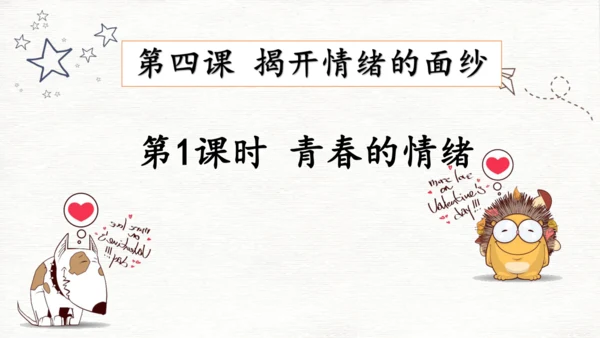 第四课 揭开情绪的面纱
第1课时 青春的情绪
more love
on
Valentine's
day!!!